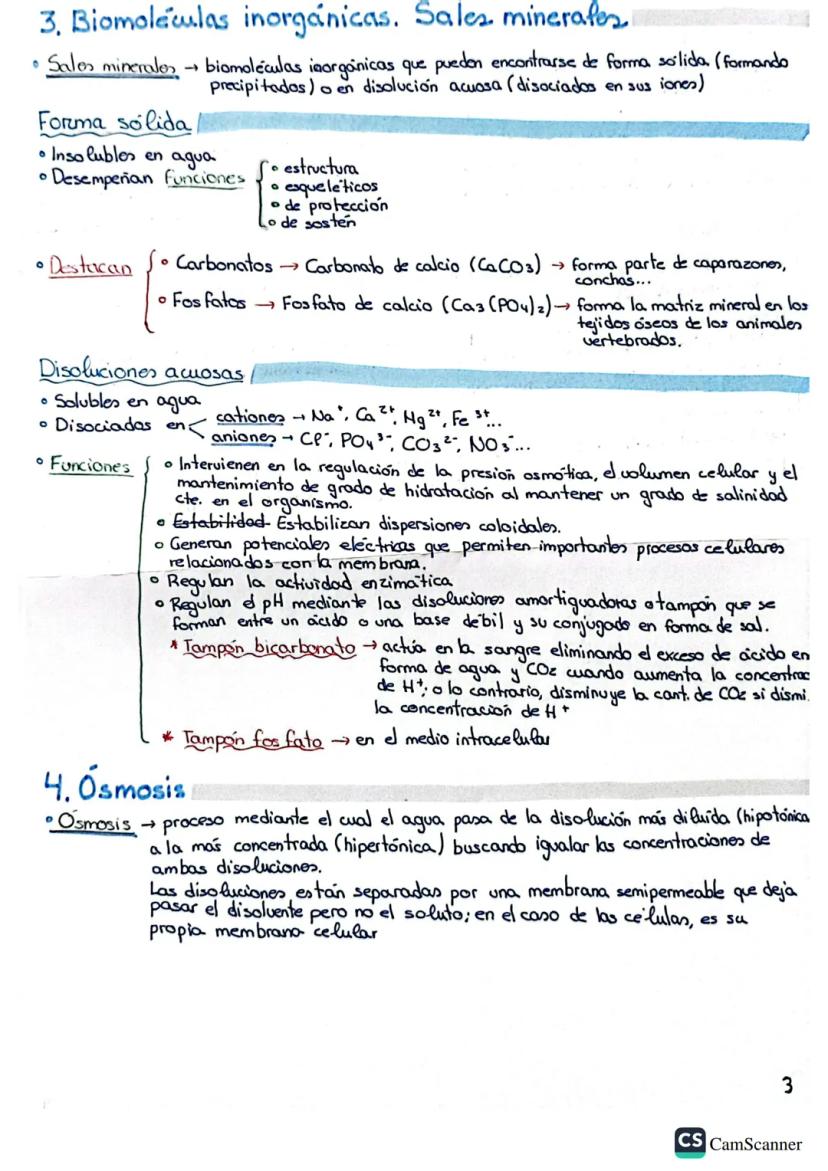 3. Biomoléculas inorgánicas. Sales minerales
• Sales minerales → biomoléculas inorgánicas que pueden encontrarse de forma sólida (formando
precipitados) o en disolución acuosa (disociados en sus iones)
Forma sólida
• Insolubles en agua
• Desempeñan funciones
• estructura
• esqueléticos
• de protección
• de sostén
• Destacan
• Carbonatos → Carbonato de calcio (CaCO3) → forma parte de caparazones,
conchas...
• Fosfatos → Fosfato de calcio (Ca3(PO4)2) → forma la matriz mineral en los
tejidos óseos de los animales
vertebrados.
Disoluciones acuosas
• Solubles en agua
• Disociadas en
cationes → Na⁺, Ca²⁺, Mg²⁺, Fe³⁺...
aniones → Cl⁻, PO4³⁻, CO3²⁻, NO3⁻...
• Funciones
• Intervienen en la regulación de la presión osmótica, el volumen celular y el
mantenimiento de grado de hidratación al mantener un grado de salinidad
cte. en el organismo.
• Estabilidad Estabilizan dispersiones coloidales.
• Generan potenciales eléctricas que permiten importantes procesos celulares
relacionados con la membrana.
• Regulan la actividad enzimática
• Regulan el pH mediante las disoluciones amortiguadoras o tampón que se
forman entre un ácido o una base débil y su conjugado en forma de sal.
* Tampón bicarbonato → actúa en la sangre eliminando el exceso de ácido en
forma de agua y CO2 cuando aumenta la concentrac
de H⁺; o lo contrario, disminuye la cant. de CO2 si dismi.
la concentración de H⁺
* Tampón fosfato → en el medio intracelular
4. Ósmosis
• Ósmosis → proceso mediante el cual el agua pasa de la disolución más diluida (hipotónica
a la más concentrada (hipertónica) buscando igualar las concentraciones de
ambas disoluciones.
Las disoluciones están separadas por una membrana semipermeable que deja
pasar el disolvente pero no el soluto; en el caso de las células, es su
propia membrana celular
3
CS CamScanner